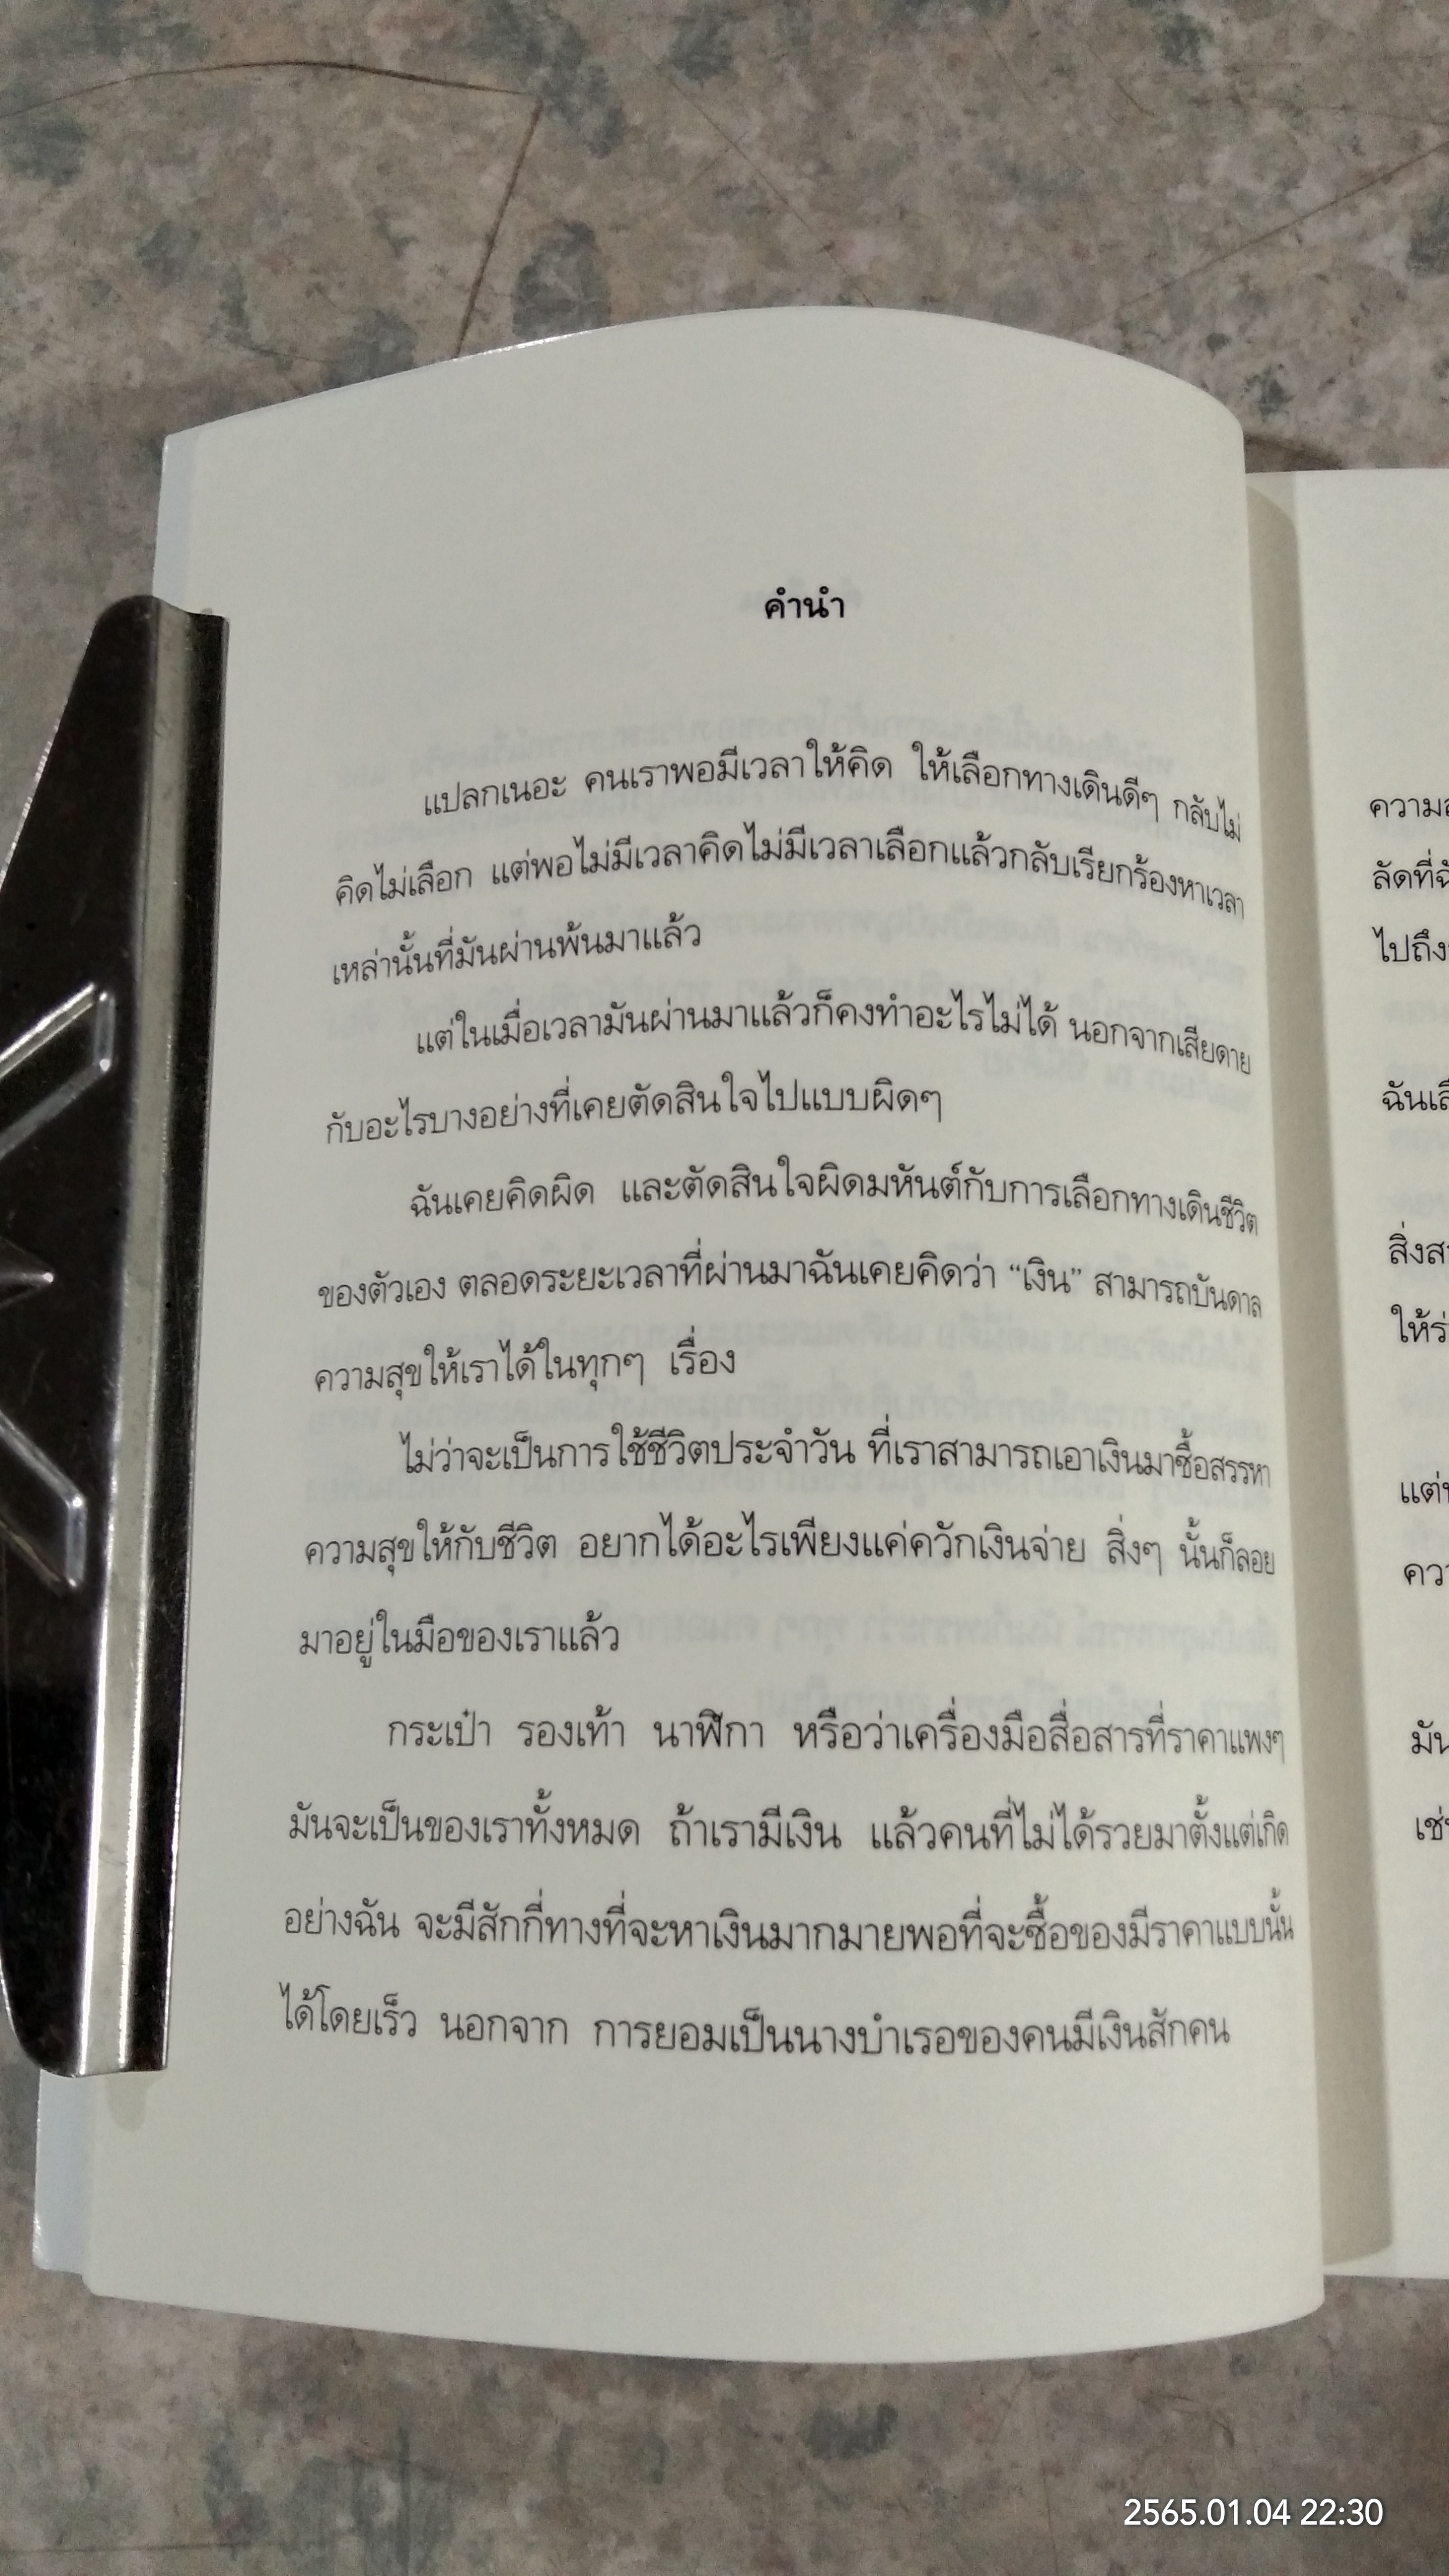 คำนำ
แปลกเนอะ คนเราพอมีเวลาให้คิด ให้เลือกทางเดินดีๆ กลับไม่
คิดไม่เลือก แต่พอไม่มีเวลาคิดไม่มีเวลาเลือกแล้วกลับเรียกร้องหาเวลา
เหล่านั้นที่มันผ่านพ้นมาแล้ว
แต่ในเมื่อเวลามันผ่านมาแล้วก็คงทำอะไรไม่ได้ นอกจากเสียดาย
กับอะไรบางอย่างที่เคยตัดสินใจไปแบบผิดๆ
ฉันเคยคิดผิด และตัดสินใจผิดมหันต์กับการเลือกทางเดินชีวิต
ของตัวเอง ตลอดระยะเวลาที่ผ่านมาฉันเคยคิดว่า “เงิน” สามารถบันดาล
ความสุขให้เราได้ในทุกๆ เรื่อง
ไม่ว่าจะเป็นการใช้ชีวิตประจำวัน ที่เราสามารถเอาเงินมาซื้อสรรหา
ความสุขให้กับชีวิต อยากได้อะไรเพียงแค่ควักเงินจ่าย สิ่งๆ นั้นก็ลอย
มาอยู่ในมือของเราแล้ว
กระเป๋า รองเท้า นาฬิกา หรือว่าเครื่องมือสื่อสารที่ราคาแพงๆ
มันจะเป็นของเราทั้งหมด ถ้าเรามีเงิน แล้วคนที่ไม่ได้รวยมาตั้งแต่เกิด
อย่างฉัน จะมีสักกี่ทางที่จะหาเงินมากมายพอที่จะซื้อของมีราคาแบบนั้น
ได้โดยเร็ว นอกจาก การยอมเป็นนางบำเรอของคนมีเงินสักคน
ลัดที่
ไปถึง
ให้
มัน
2565.01.04 22:30